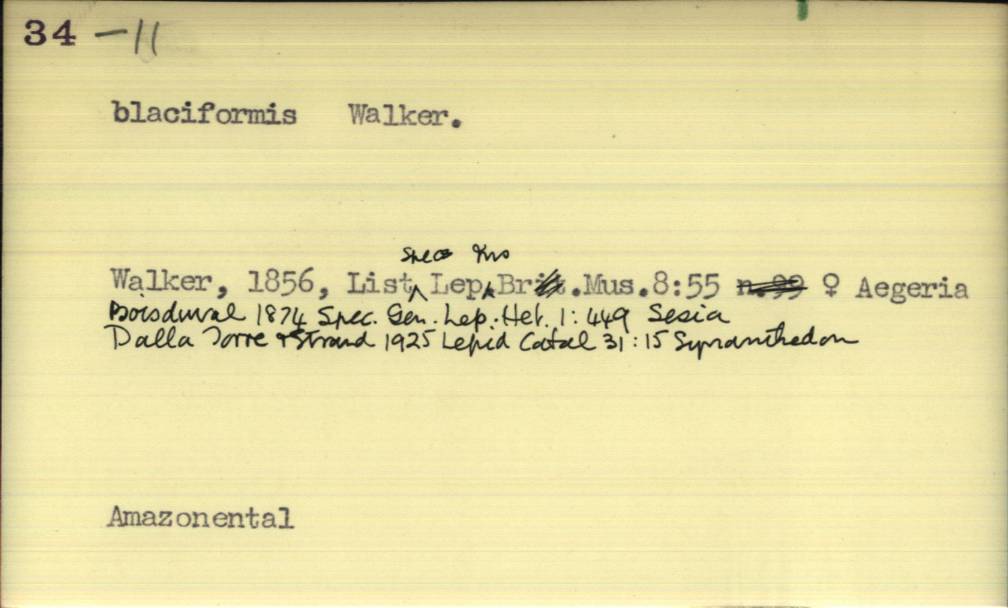 34 -11
blaciformis Walker.
Spec Ins
Walker, 1856, List Lep Br.Mus.8:55 n.99 ♀ Aegeria
Boisduval 1874 Spec. Gen. Lep. Het. 1: 449 Sesia
Dalla Torre & Strand 1925 Lepid Catal 31:15 Synanthedon
Amazonental